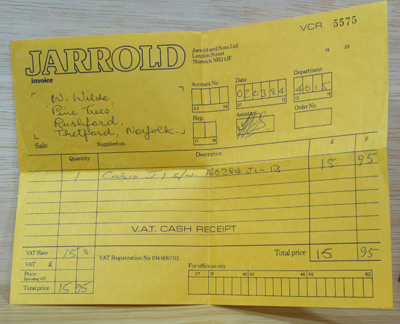 VCR 5575
JARROLD
invoice
Jarrold and Sons Ltd
London Street
Norwich NR2 1JF
Account No.
Date
020384
Department
4015
W. Wilde,
Pine Trees,
Rushford,
Thetford, Norfolk.
Rep:
Assistant
Order No:
Sale
Supplied on
Quantity
Description
£
p
1 Casio J1 S/N. 160284 J1-B 15 95
V.A.T. CASH RECEIPT
VAT Rate 15 %
Total price 15 95
VAT £
VAT Registration No 104 6067 03
Price
Excluding VAT
For office only
Total price 15 95